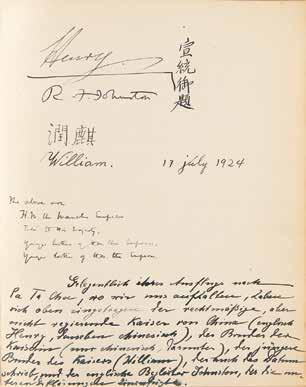 Henry
宣統御題
R F Johnston
潤麒
William. 17 July 1924
The above are
H.M. the Manchu Emperor
Tutor to His Majesty.
Younger brother of H.M. the Empress.
Younger brother of H.M. the Emperor.
Gelegentlich ihres Ausfluges nach
Pa Ta Chu, wo wir uns aufhalten, haben
sich oben eingetragen der rechtmäßige, aber
nicht regierende Kaiser von China (englisch
Henry, daneben chinesisch), der Bruder der
Kaiserin (nur chinesisch darunter), der jüngere
Bruder des Kaisers (William), der auch das Datum
schrieb, und der englische Begleiter Johnston, der die